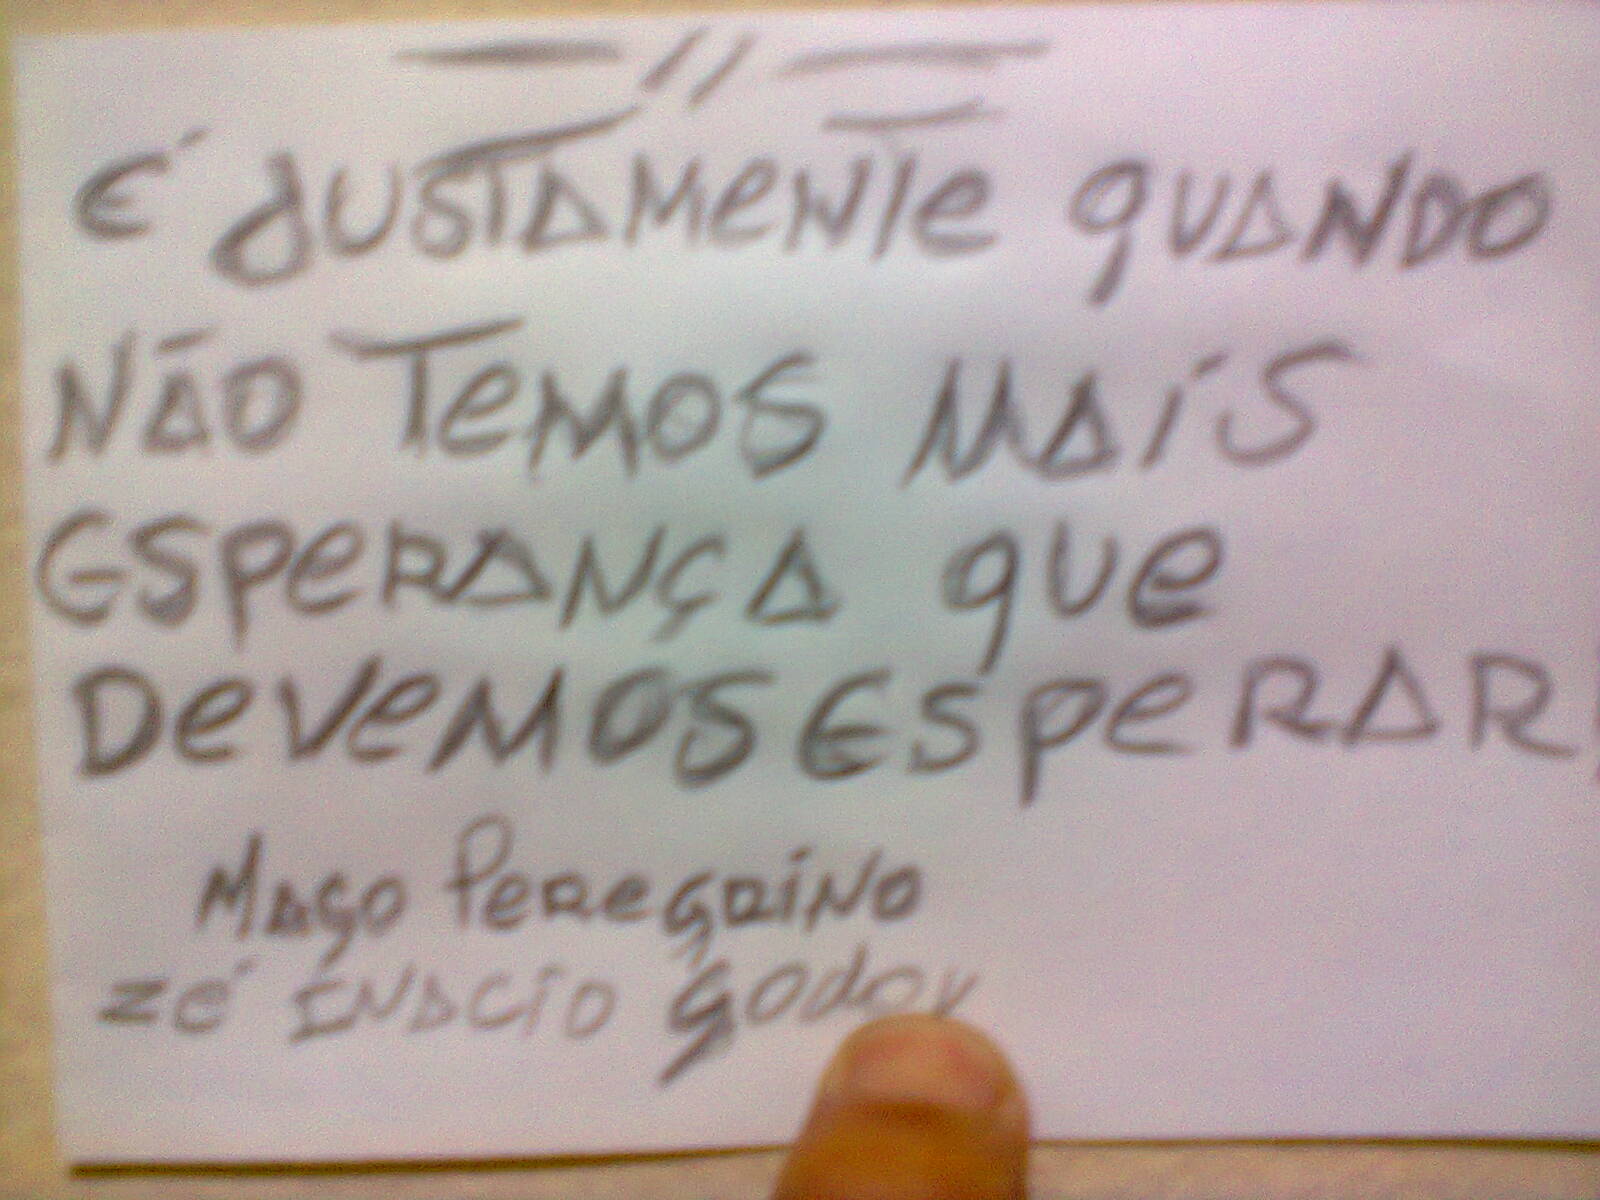 É JUSTAMENTE QUANDO
NÃO TEMOS MAIS
ESPERANÇA QUE
DEVEMOS ESPERAR!
MAGO PEREGRINO
ZÉ INACIO GODOY